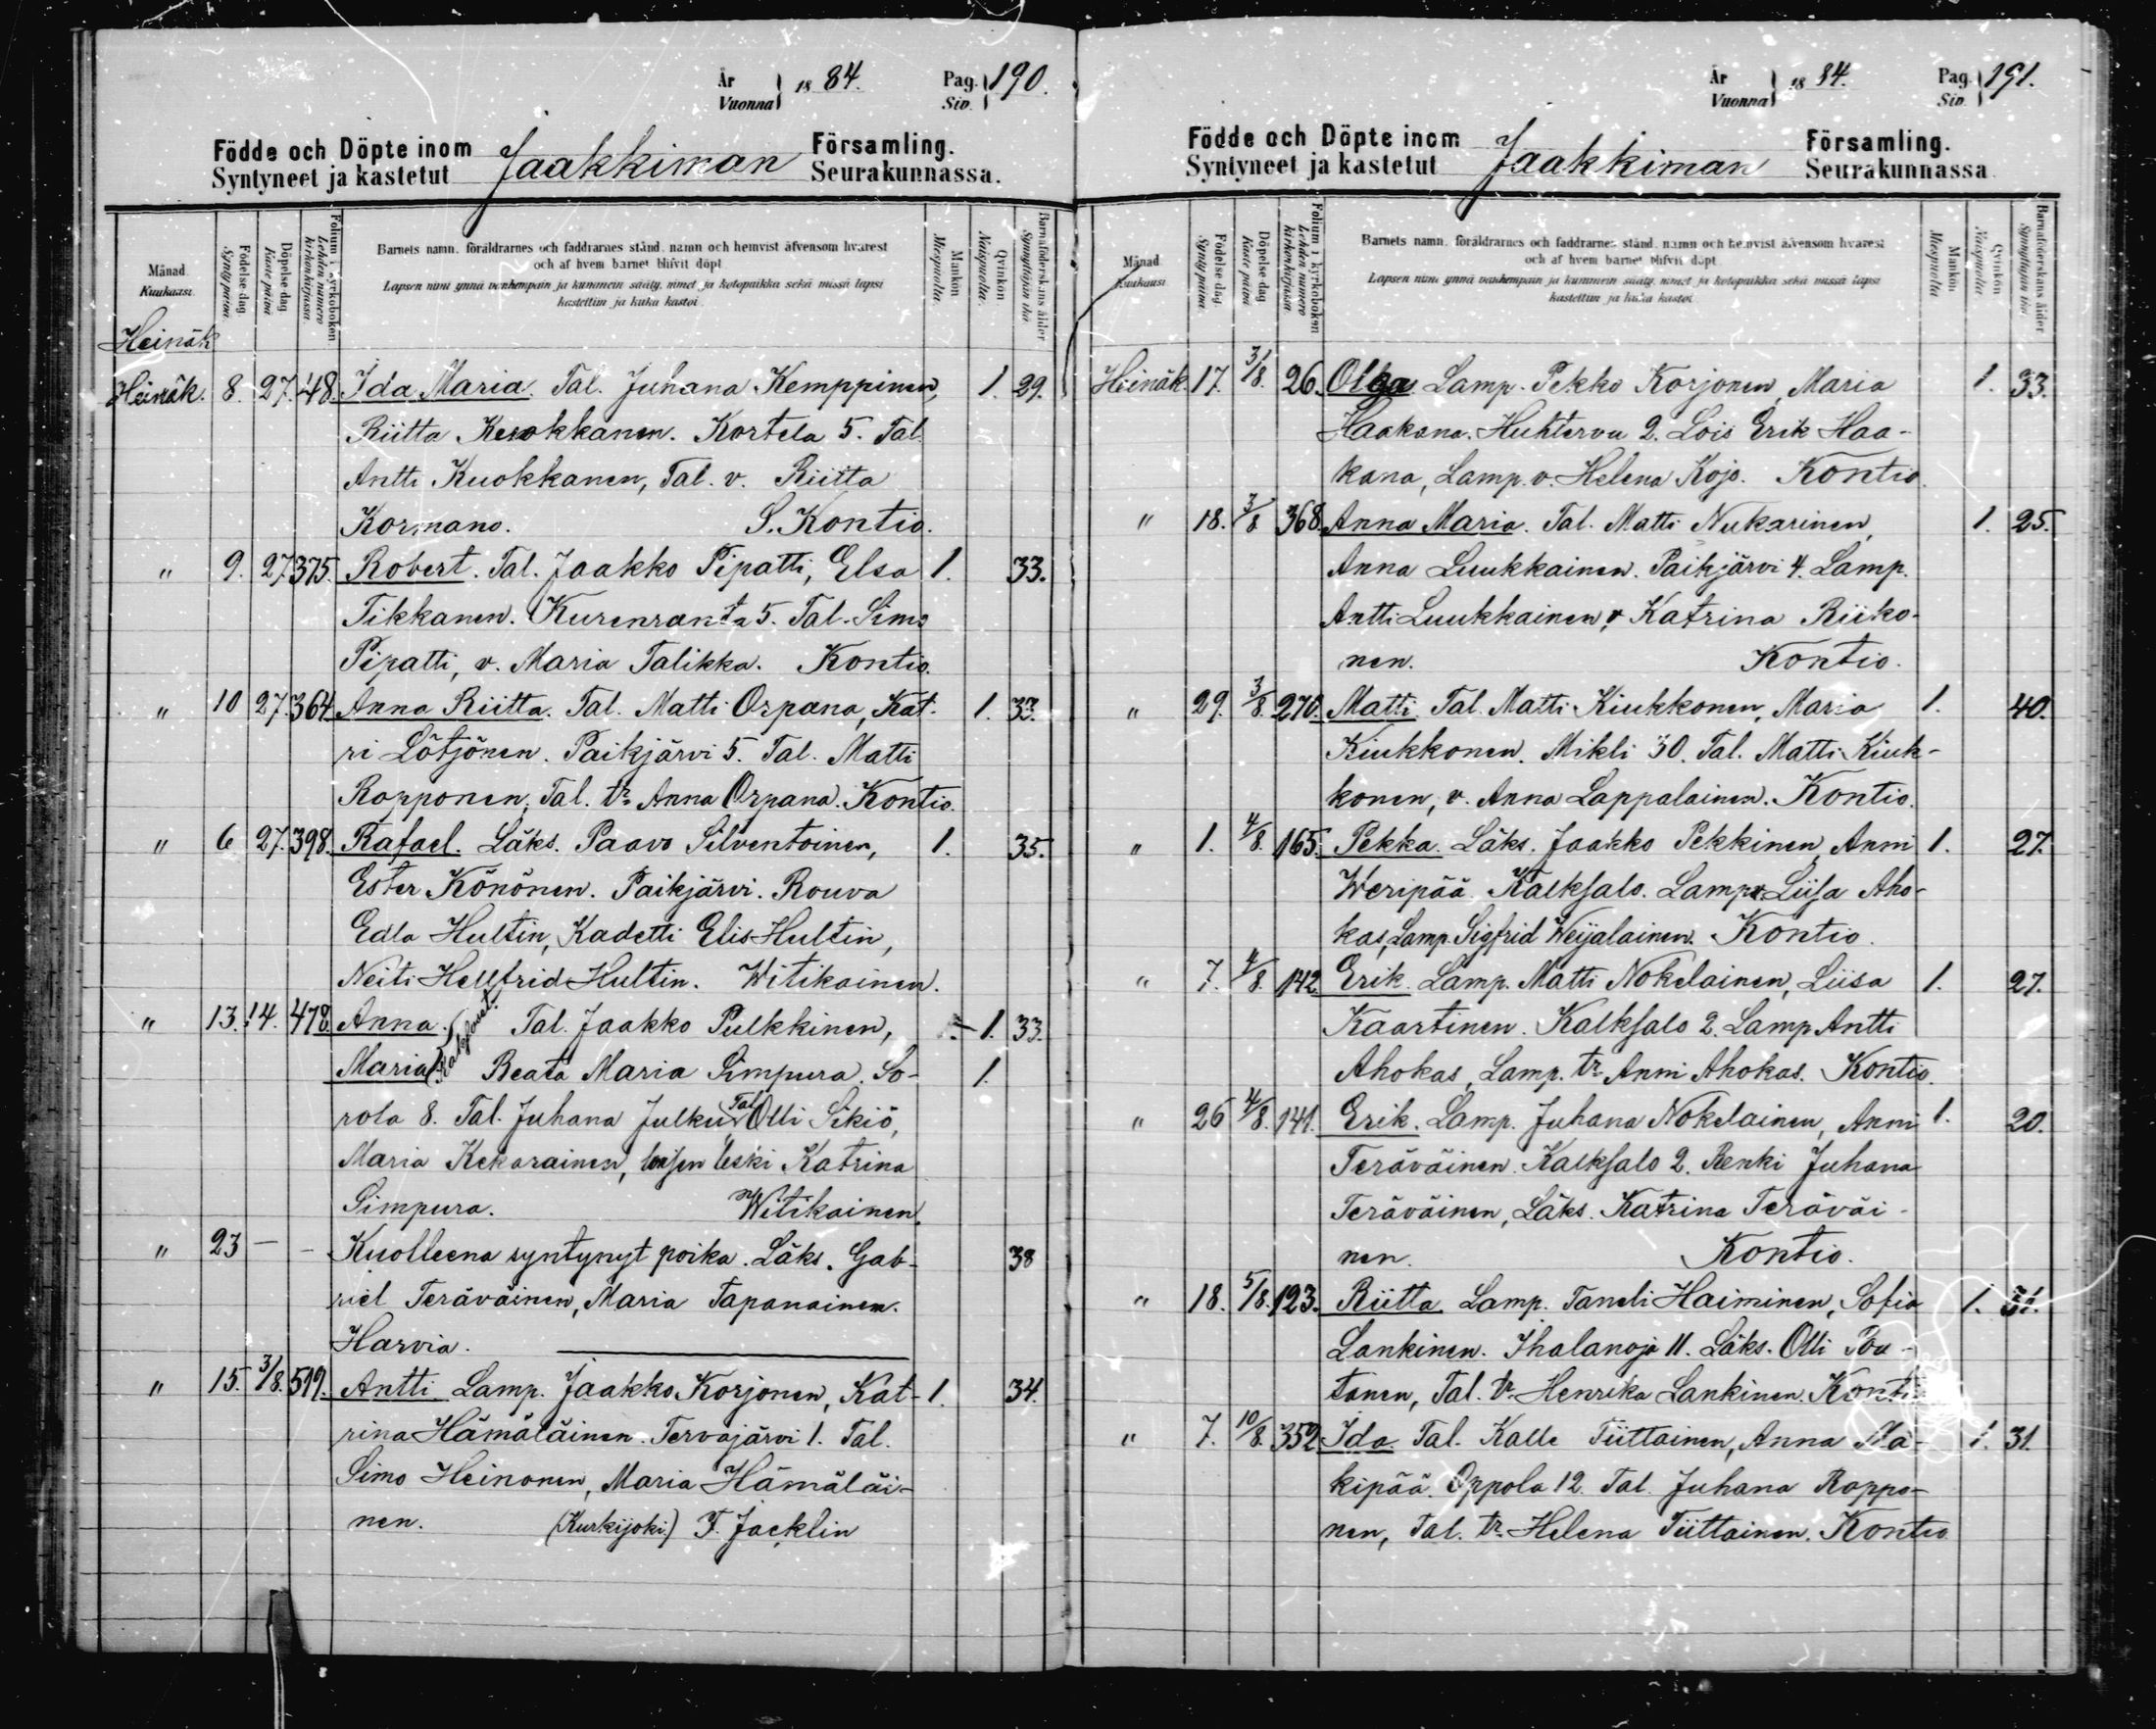 År Vuonna 1884. Pag. Siv. 190.
Födde och Döpte inom Jaakkiman Församling.
Syntyneet ja kastetut Seurakunnassa.
Månad Kuukausi.
Födelse dag Synty päivä.
Döpelse dag Kaste päivä
Folium i kyrkoboken Lehden numero kirkonkirjassa.
Barnets namn, föräldrarnes och faddrarnes stånd, namn och hemvist äfvensom hvarest
och af hvem barnet blifvit döpt.
Lapsen nimi ynnä vanhempain ja kummein sääty, nimet ja kotopaikka sekä missä lapsi
kastettiin ja kuka kastoi.
Mankön Miespuolia.
Qvinkön Naispuolia.
Barnaföderskans ålder Synnyttäjän ikä
Heinäk
Heinäk. 8. 27. 48. Ida Maria. Tal. Juhana Kemppinen, 1. 29.
Riitta Kuokkanen. Kortela 5. Tal.
Antti Kuokkanen, Tal. v. Riitta
Kormano. S. Kontio.
" 9. 27. 375. Robert. Tal. Jaakko Pipatti, Elsa 1. 33.
Tikkanen. Kurenranta 5. Tal. Simo
Pipatti, v. Maria Talikka. Kontio.
" 10 27. 364 Anna Riitta. Tal. Matti Orpana, Kat- 1. 33.
ri Lötjönen. Paikjärvi 5. Tal. Matti
Ropponen, Tal. tr. Anna Orpana. Kontio.
" 6 27. 398. Rafael. Läks. Paavo Silventoinen, 1. 35.
Ester Könönen. Paikjärvi. Rouva
Edla Hultin, Kadetti Elis Hultin,
Neiti Hellfrid Hultin. Witikainen.
" 13. 14. 478. Anna. Tal. Jaakko Pulkkinen, 1. 33.
Maria Beata Maria Simpura. So- 1.
rola 8. Tal. Juhana Julku, Tal Olli Sikiö,
Maria Kekarainen, loisen leski Katrina
Simpura. Witikainen.
" 23 — - Kuolleena syntynyt poika. Läks. Gab- 38
riel Teräväinen, Maria Tapanainen.
Harvia.
" 15. 3/8. 519. Antti. Lamp. Jaakko Korjonen, Kat- 1. 34.
rina Hämäläinen. Tervajärvi 1. Tal.
Simo Heinonen, Maria Hämäläi-
nen. (Kurkijoki.) F. Jacklin
År Vuonna 1884. Pag. Siv. 191.
Födde och Döpte inom Jaakkiman Församling.
Syntyneet ja kastetut Seurakunnassa
Månad Kuukausi
Födelse dag. Synty päivä
Döpelse dag Kaste päivä
Folium i kyrkoboken Lehden numero kirkonkirjassa
Barnets namn, föräldrarnes och faddrarnes stånd, namn och hemvist äfvensom hvarest
och af hvem barnet blifvit döpt
Lapsen nimi ynnä vanhempain ja kummein sääty, nimet ja kotopaikka sekä missä lapsi
kastettiin ja kuka kastoi
Mankön Miespuolia
Qvinkön Naispuolia
Barnaföderskans ålder Synnyttäjän ikä
Heinäk. 17. 3/8. 26. Olga. Lamp. Pekko Korjonen, Maria 1. 33.
Haakana. Huhtervu 2. Lois Erik Haa-
kana, Lamp. v. Helena Kojo. Kontio.
" 18. 3/8 368. Anna Maria. Tal. Matti Nukarinen, 1. 25.
Anna Luukkainen. Paikjärvi 4. Lamp.
Antti Luukkainen, v. Katrina Riiko-
nen. Kontio.
" 29. 3/8. 270. Matti. Tal. Matti Kiukkonen, Maria 1. 40.
Kiukkonen. Mikli 30. Tal. Matti Kiuk-
konen, v. Anna Lappalainen. Kontio.
" 1. 4/8. 165. Pekka. Läks. Jaakko Pekkinen, Anni 1. 27.
Weripää. Kalksalo. Lamp. v. Liisa Aho-
kas, Lamp. Sigfrid Weijalainen. Kontio.
" 7. 4/8. 142. Erik. Lamp. Matti Nokelainen, Liisa 1. 27.
Kaartinen. Kalksalo 2. Lamp Antti
Ahokas, Lamp. tr. Anni Ahokas. Kontio.
" 26 4/8. 141. Erik. Lamp. Juhana Nokelainen, Anni 1. 20.
Teräväinen. Kalksalo 2. Renki Juhana
Teräväinen, Läks. Katrina Teräväi-
nen. Kontio.
" 18. 5/8. 123. Riitta. Lamp. Taneli Haiminen, Sofia 1.
Lankinen. Ihalanoja 11. Läks. Olli Pou-
tanen, Tal. tr. Henrika Lankinen. Kontio
" 7. 10/8. 352 Ida. Tal. Kalle Tiittainen, Anna Mä- 1. 31.
kipää. Oppola 12. Tal. Juhana Roppo-
nen, Tal. tr. Helena Tiittainen. Kontio